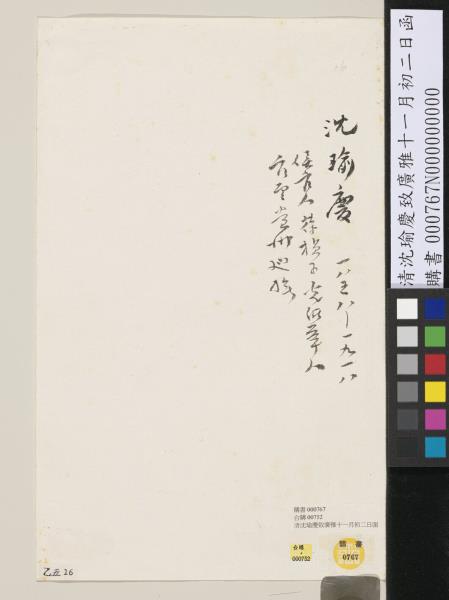 沈瑜慶 一八五八—一九一八
侯官人 葆楨子 光緒舉人
官至貴州巡撫
購書 000767
台購 00752
清沈瑜慶致廣雅十一月初二日函
台購
000752
購書
0767
26
清沈瑜慶致廣雅十一月初二日函
購書 000767N000000000